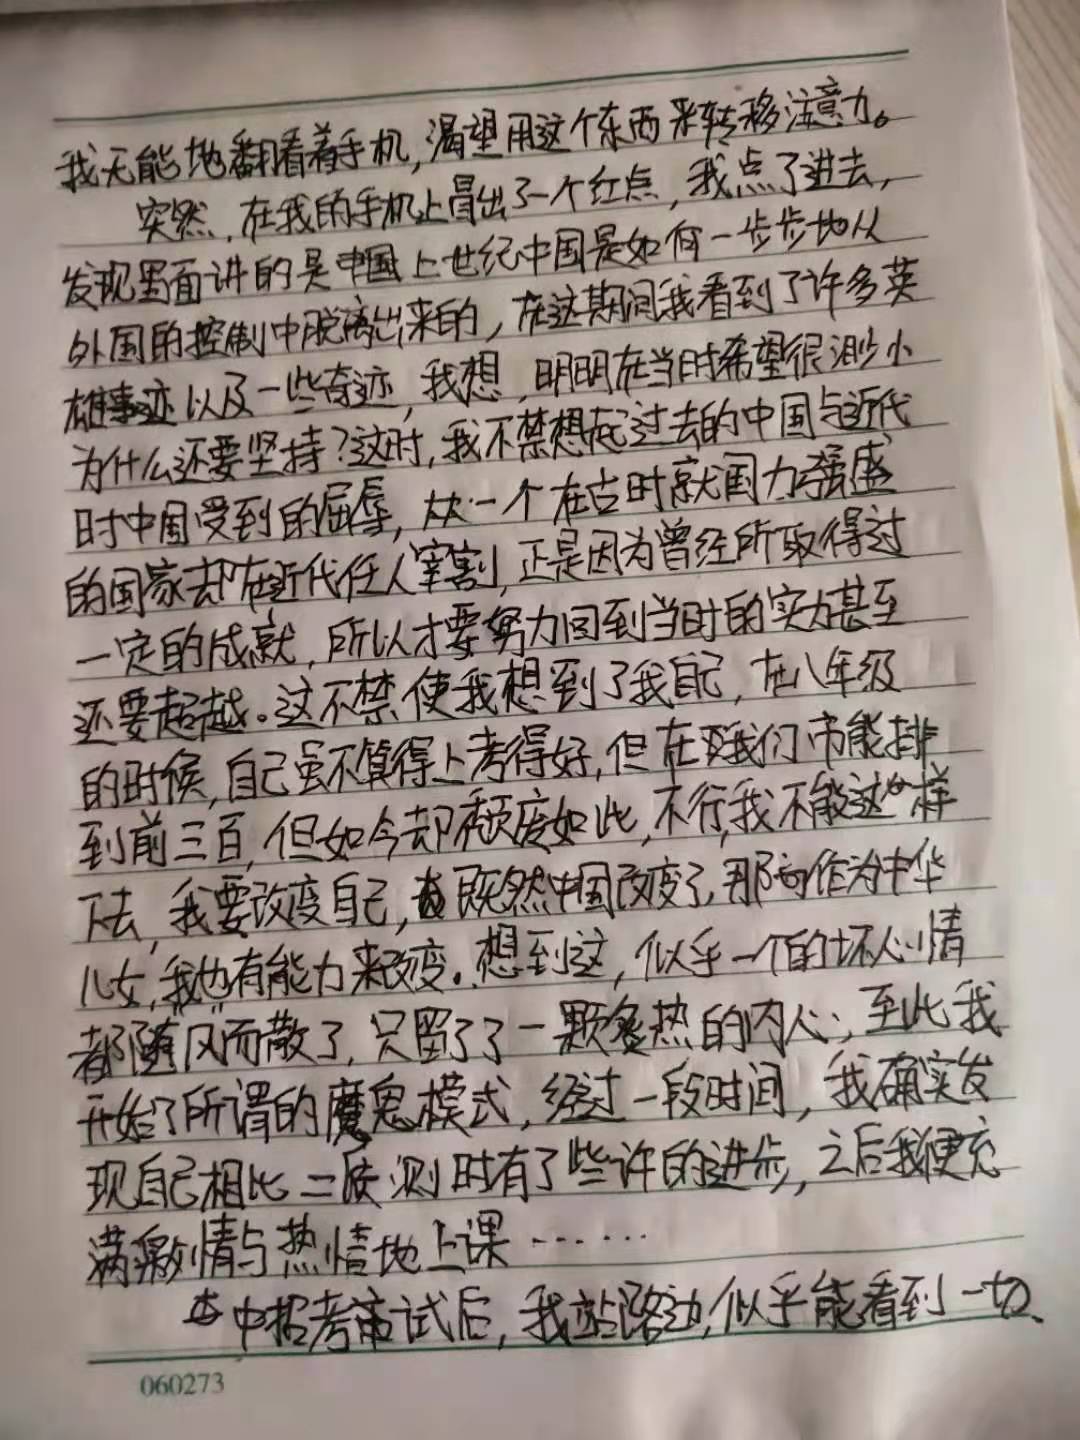 我无能地翻看着手机，渴望用这个东西来转移注意力。
突然，在我的手机上冒出了一个红点，我点了进去，
发现里面讲的是中国上世纪中国是如何一步步地从
外国的控制中脱离出来的，在这期间我看到了许多英
雄事迹以及一些奇迹，我想，明明在当时希望很渺小
为什么还要坚持？这时，我不禁想起过去的中国与近代
时中国受到的屈辱，从一个在古时就国力强盛
的国家却在近代任人宰割，正是因为曾经所取得过
一定的成就，所以才要努力回到当时的实力甚至
还要超越。这不禁使我想到了我自己，在八年级
的时候，自己虽不算得上考得好，但在我们市能排
到前三百，但如今却颓废如此，不行，我不能这样
下去，我要改变自己，既然中国改变了，那作为中华
儿女，我也有能力来改变。想到这，似乎一个的坏心情
都随风而散了，只留了了一颗炙热的内心，至此我
开始了所谓的魔鬼模式，经过一段时间，我确实发
现自己相比二质测时有了些许的进步，之后我便充
满激情与热情地上课……
中招考试后，我站路边，似乎能看到一切、
060273